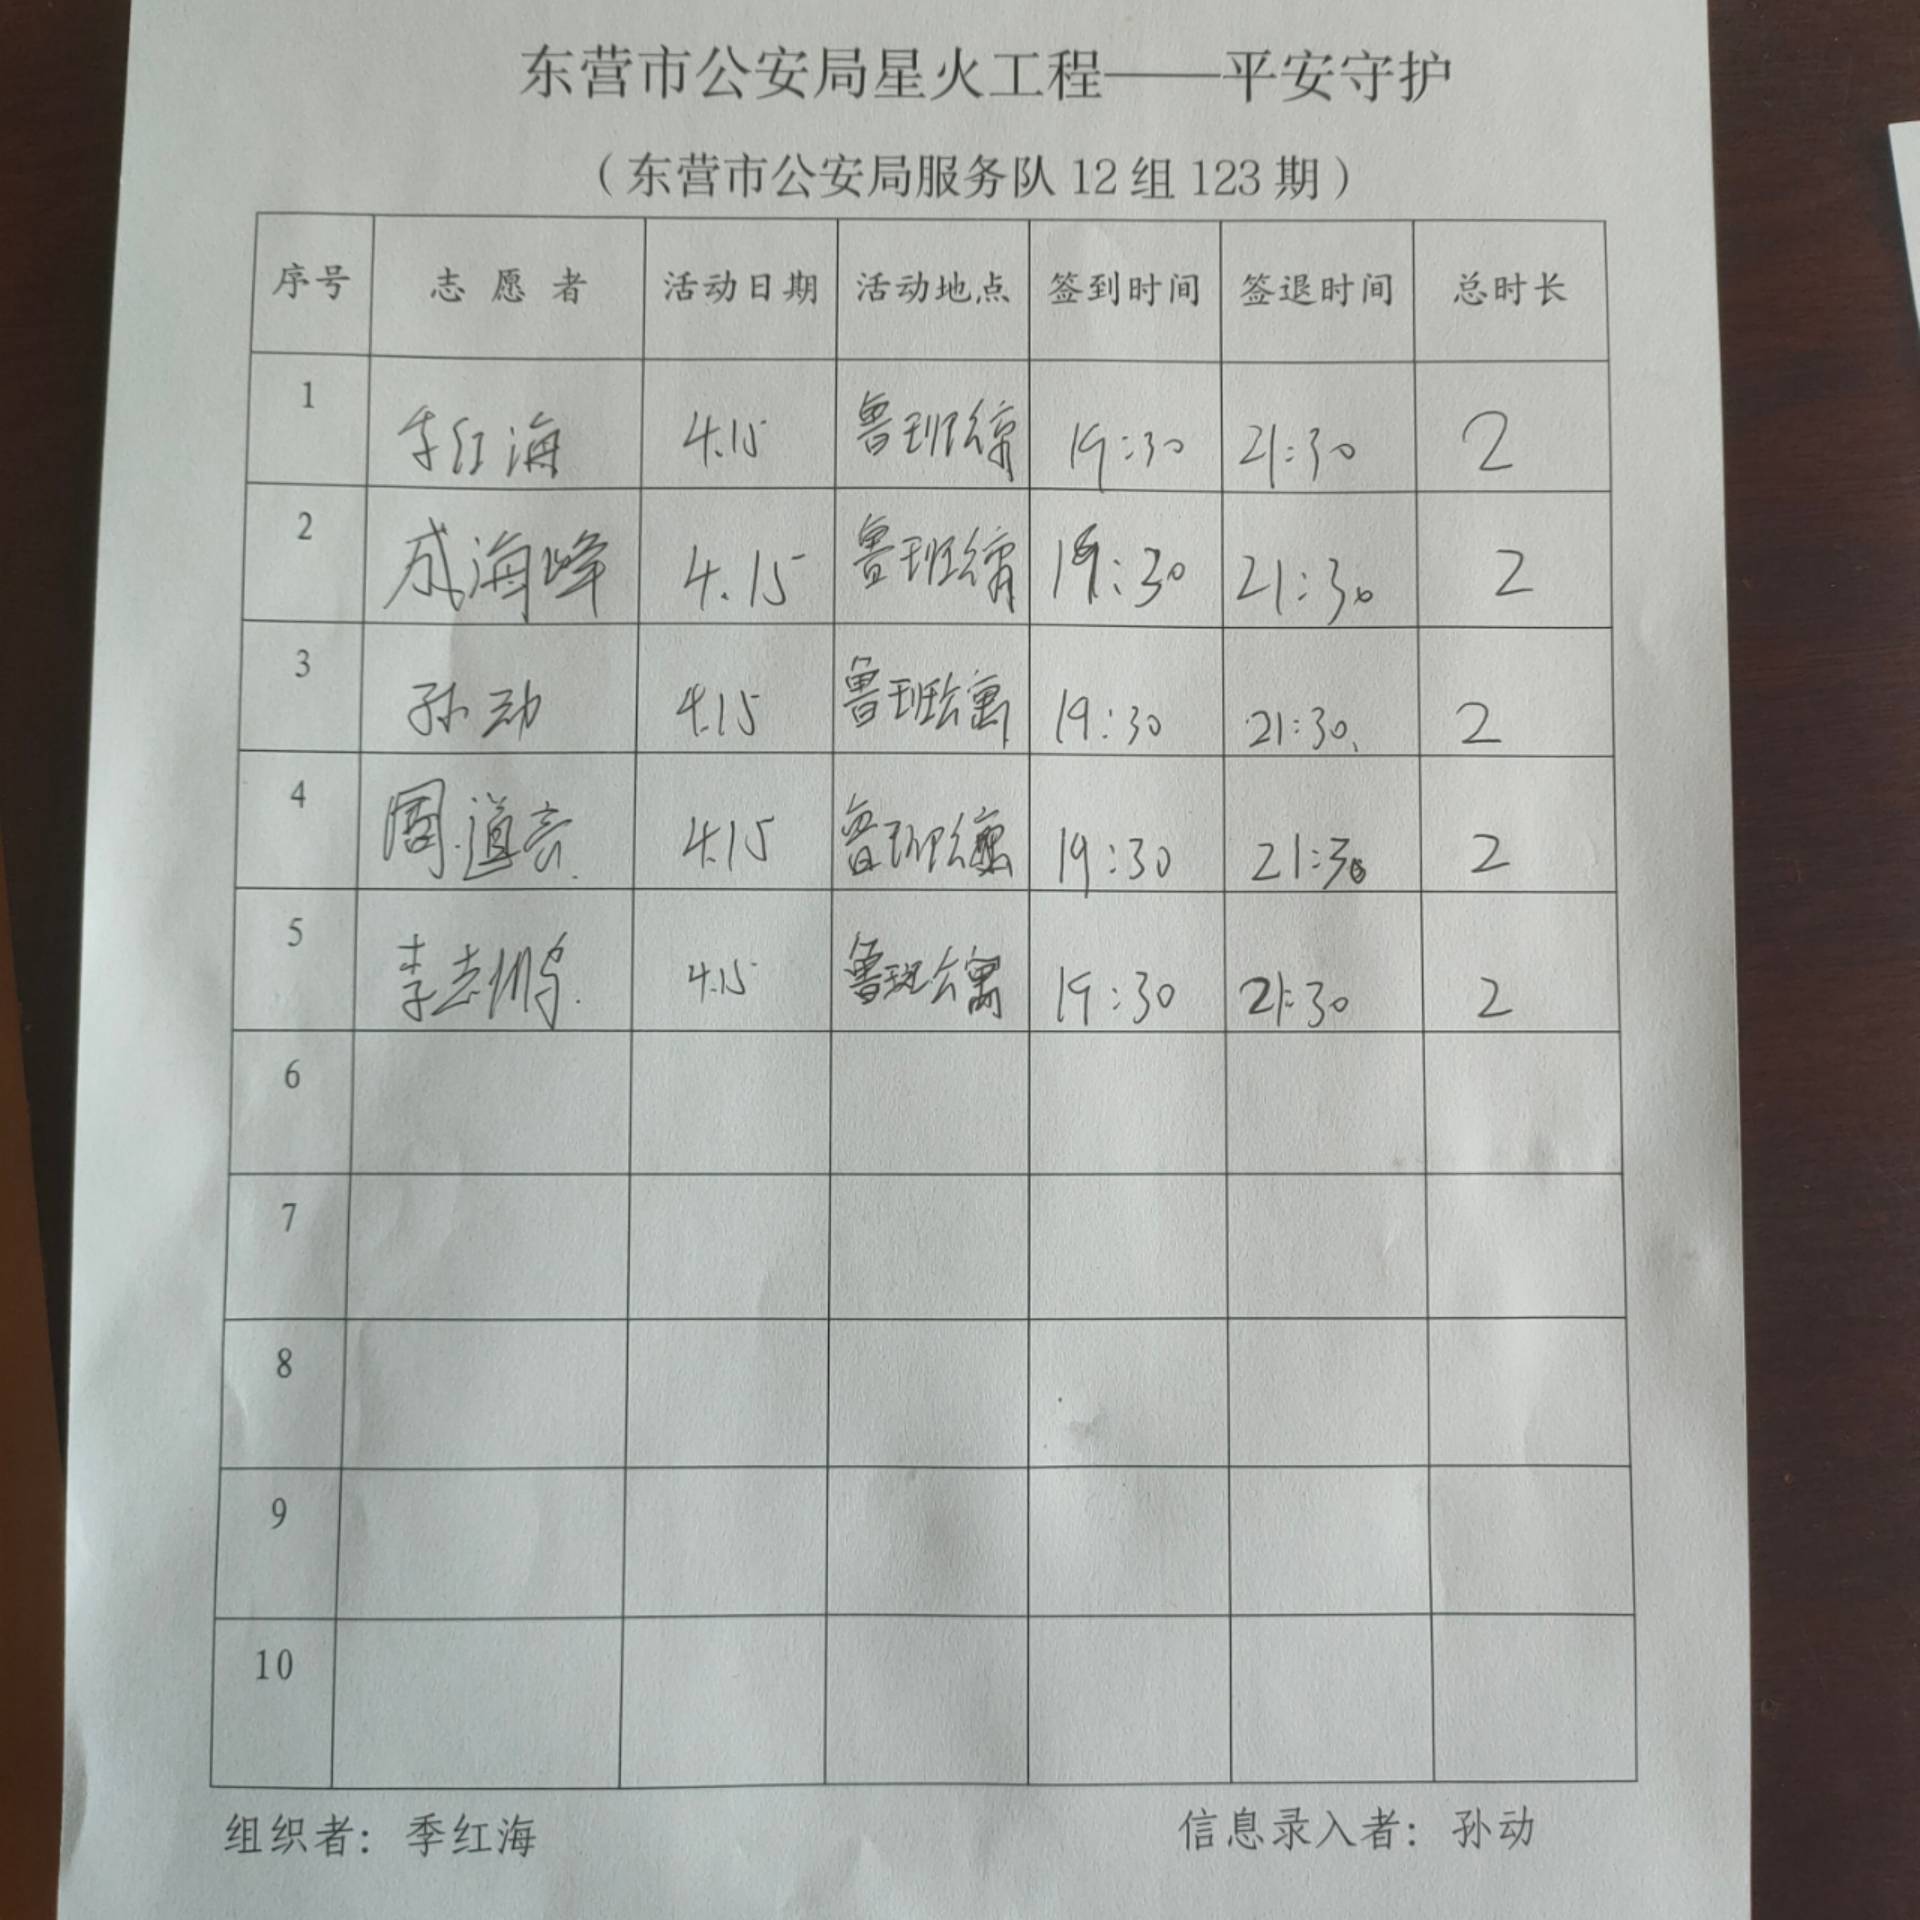 东营市公安局星火工程——平安守护
（东营市公安局服务队 12 组 123 期）
序号 志愿者 活动日期 活动地点 签到时间 签退时间 总时长
1 季红海 4.15 鲁班公寓 19:30 21:30 2
2 成海峰 4.15 鲁班公寓 19:30 21:30 2
3 孙动 4.15 鲁班公寓 19:30 21:30 2
4 周道亮 4.15 鲁班公寓 19:30 21:30 2
5 李志鹏 4.15 鲁班公寓 19:30 21:30 2
6
7
8
9
10
组织者：季红海 信息录入者：孙动